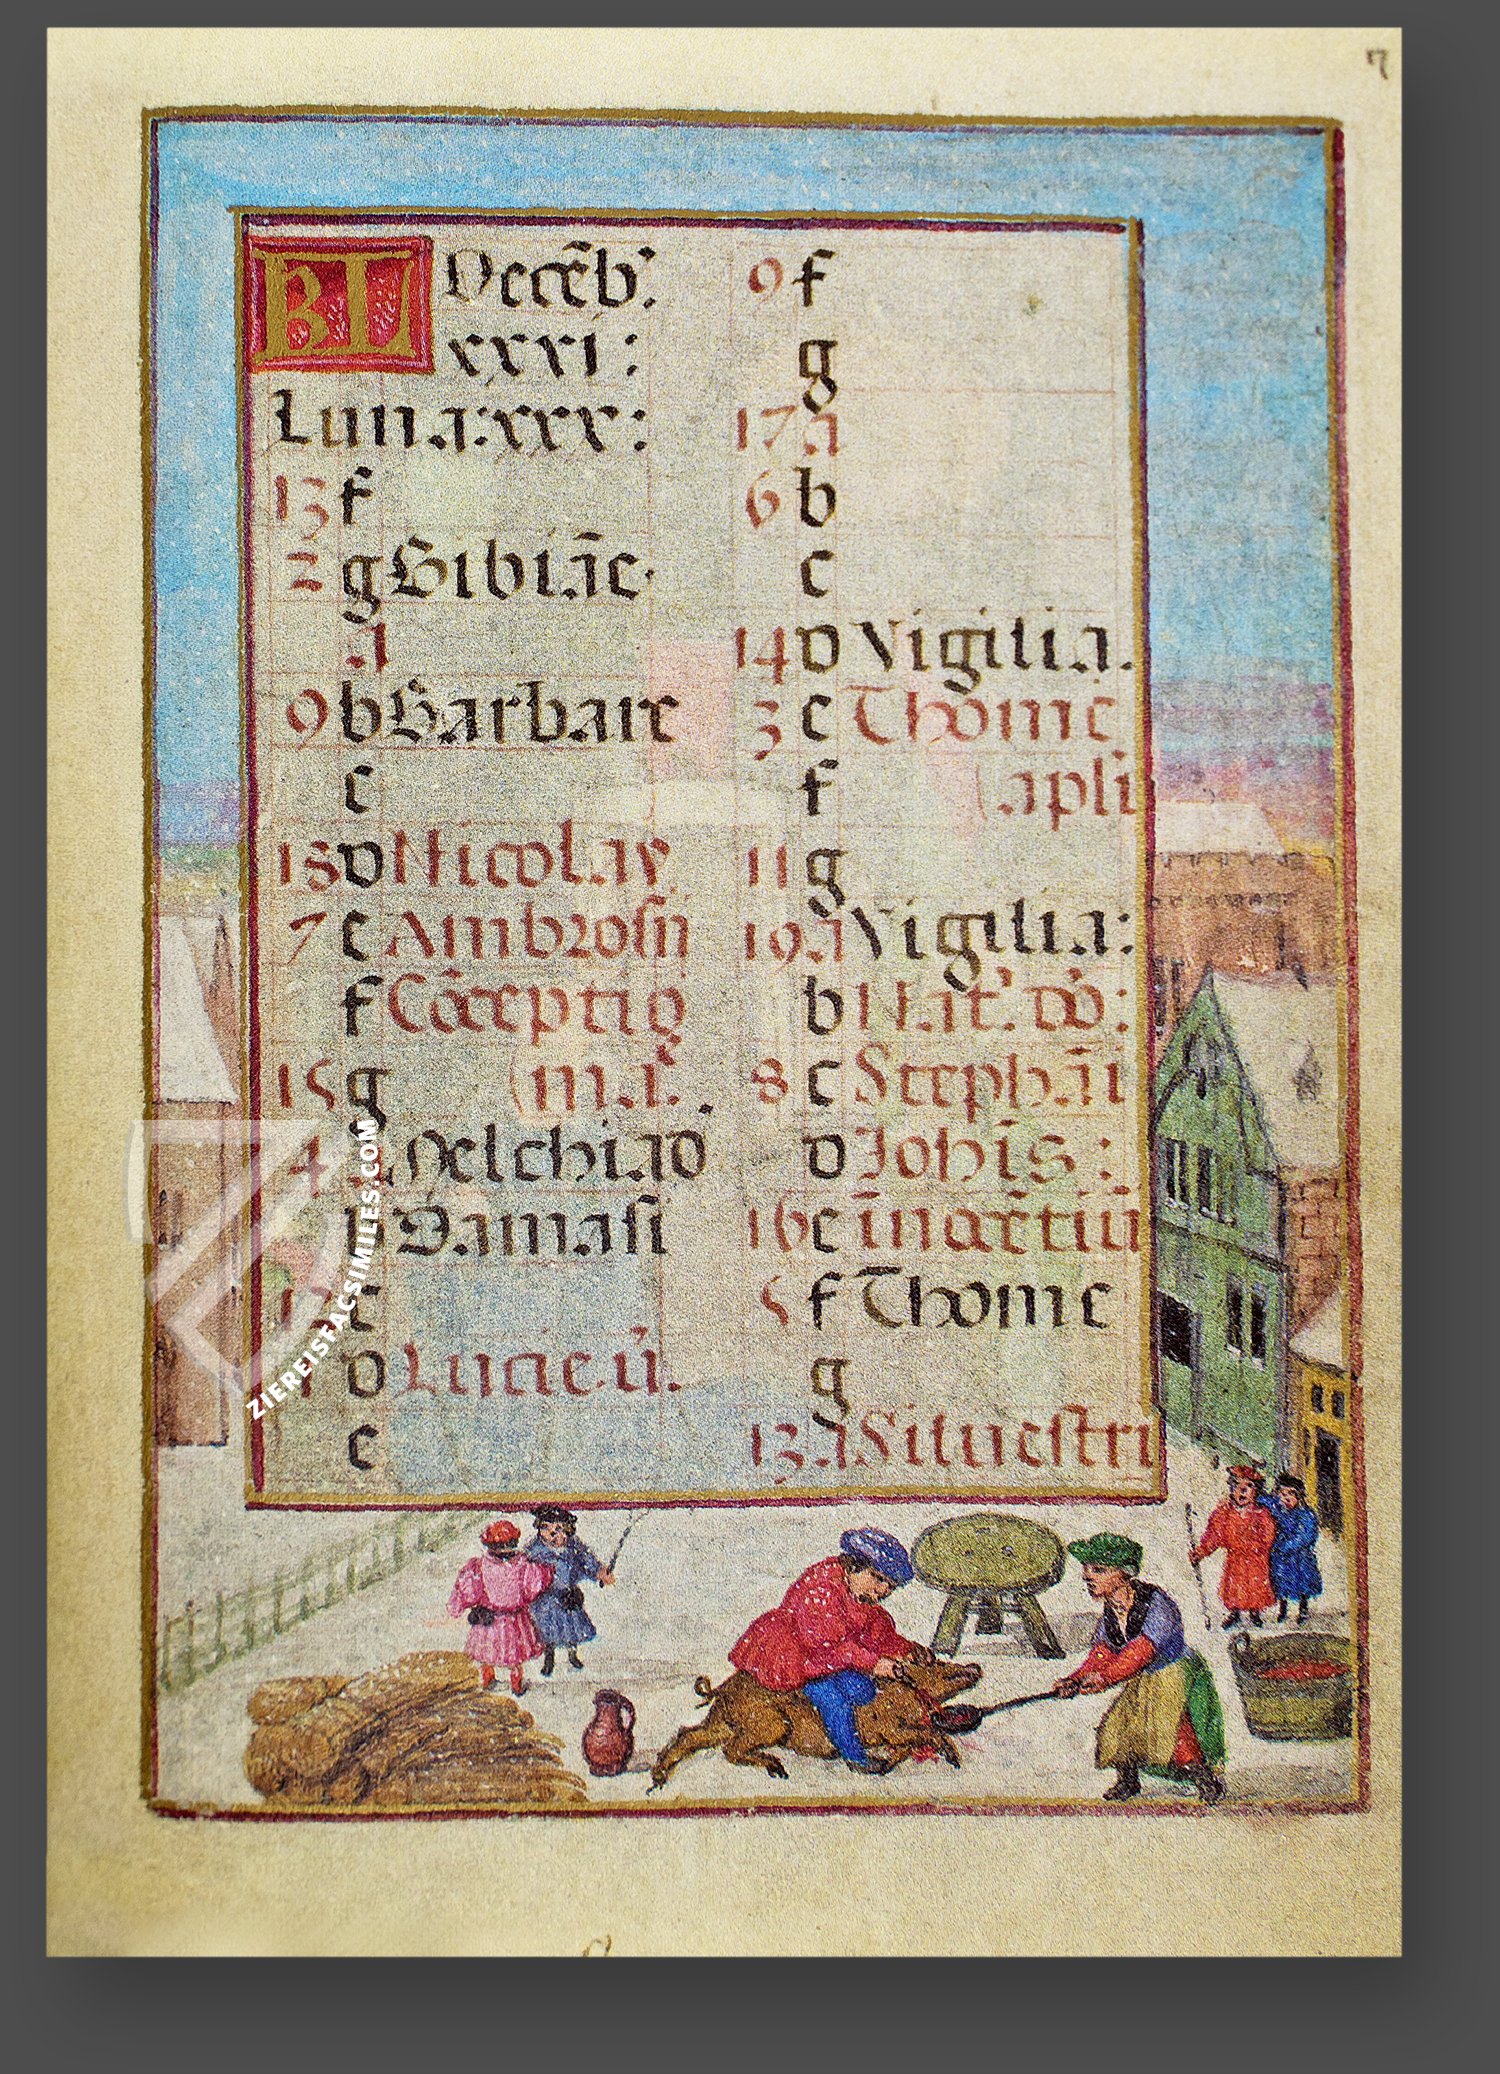 7
KL Decēb'.
xxxi:
Luna:xxx:
13 f
2 g Bibiāe.
A
9 b Barbare
c
18 d Nicolay
7 e Ambrosij
f Cōceptiō
15 g (m.r.
4 Melchiad
b Damasi
12 c
1 d Lucie.v̄.
e
9 f
g
17 A
6 b
c
14 d Vigilia.
3 e Thome
f (apli
11 g
19 A Vigilia:
b Nat'. dō:
8 c Stephāi
d Johīs:
16 e īnocētiū
5 f Thome
g
13 A Siluestri
ZIEREISFACSIMILES.COM